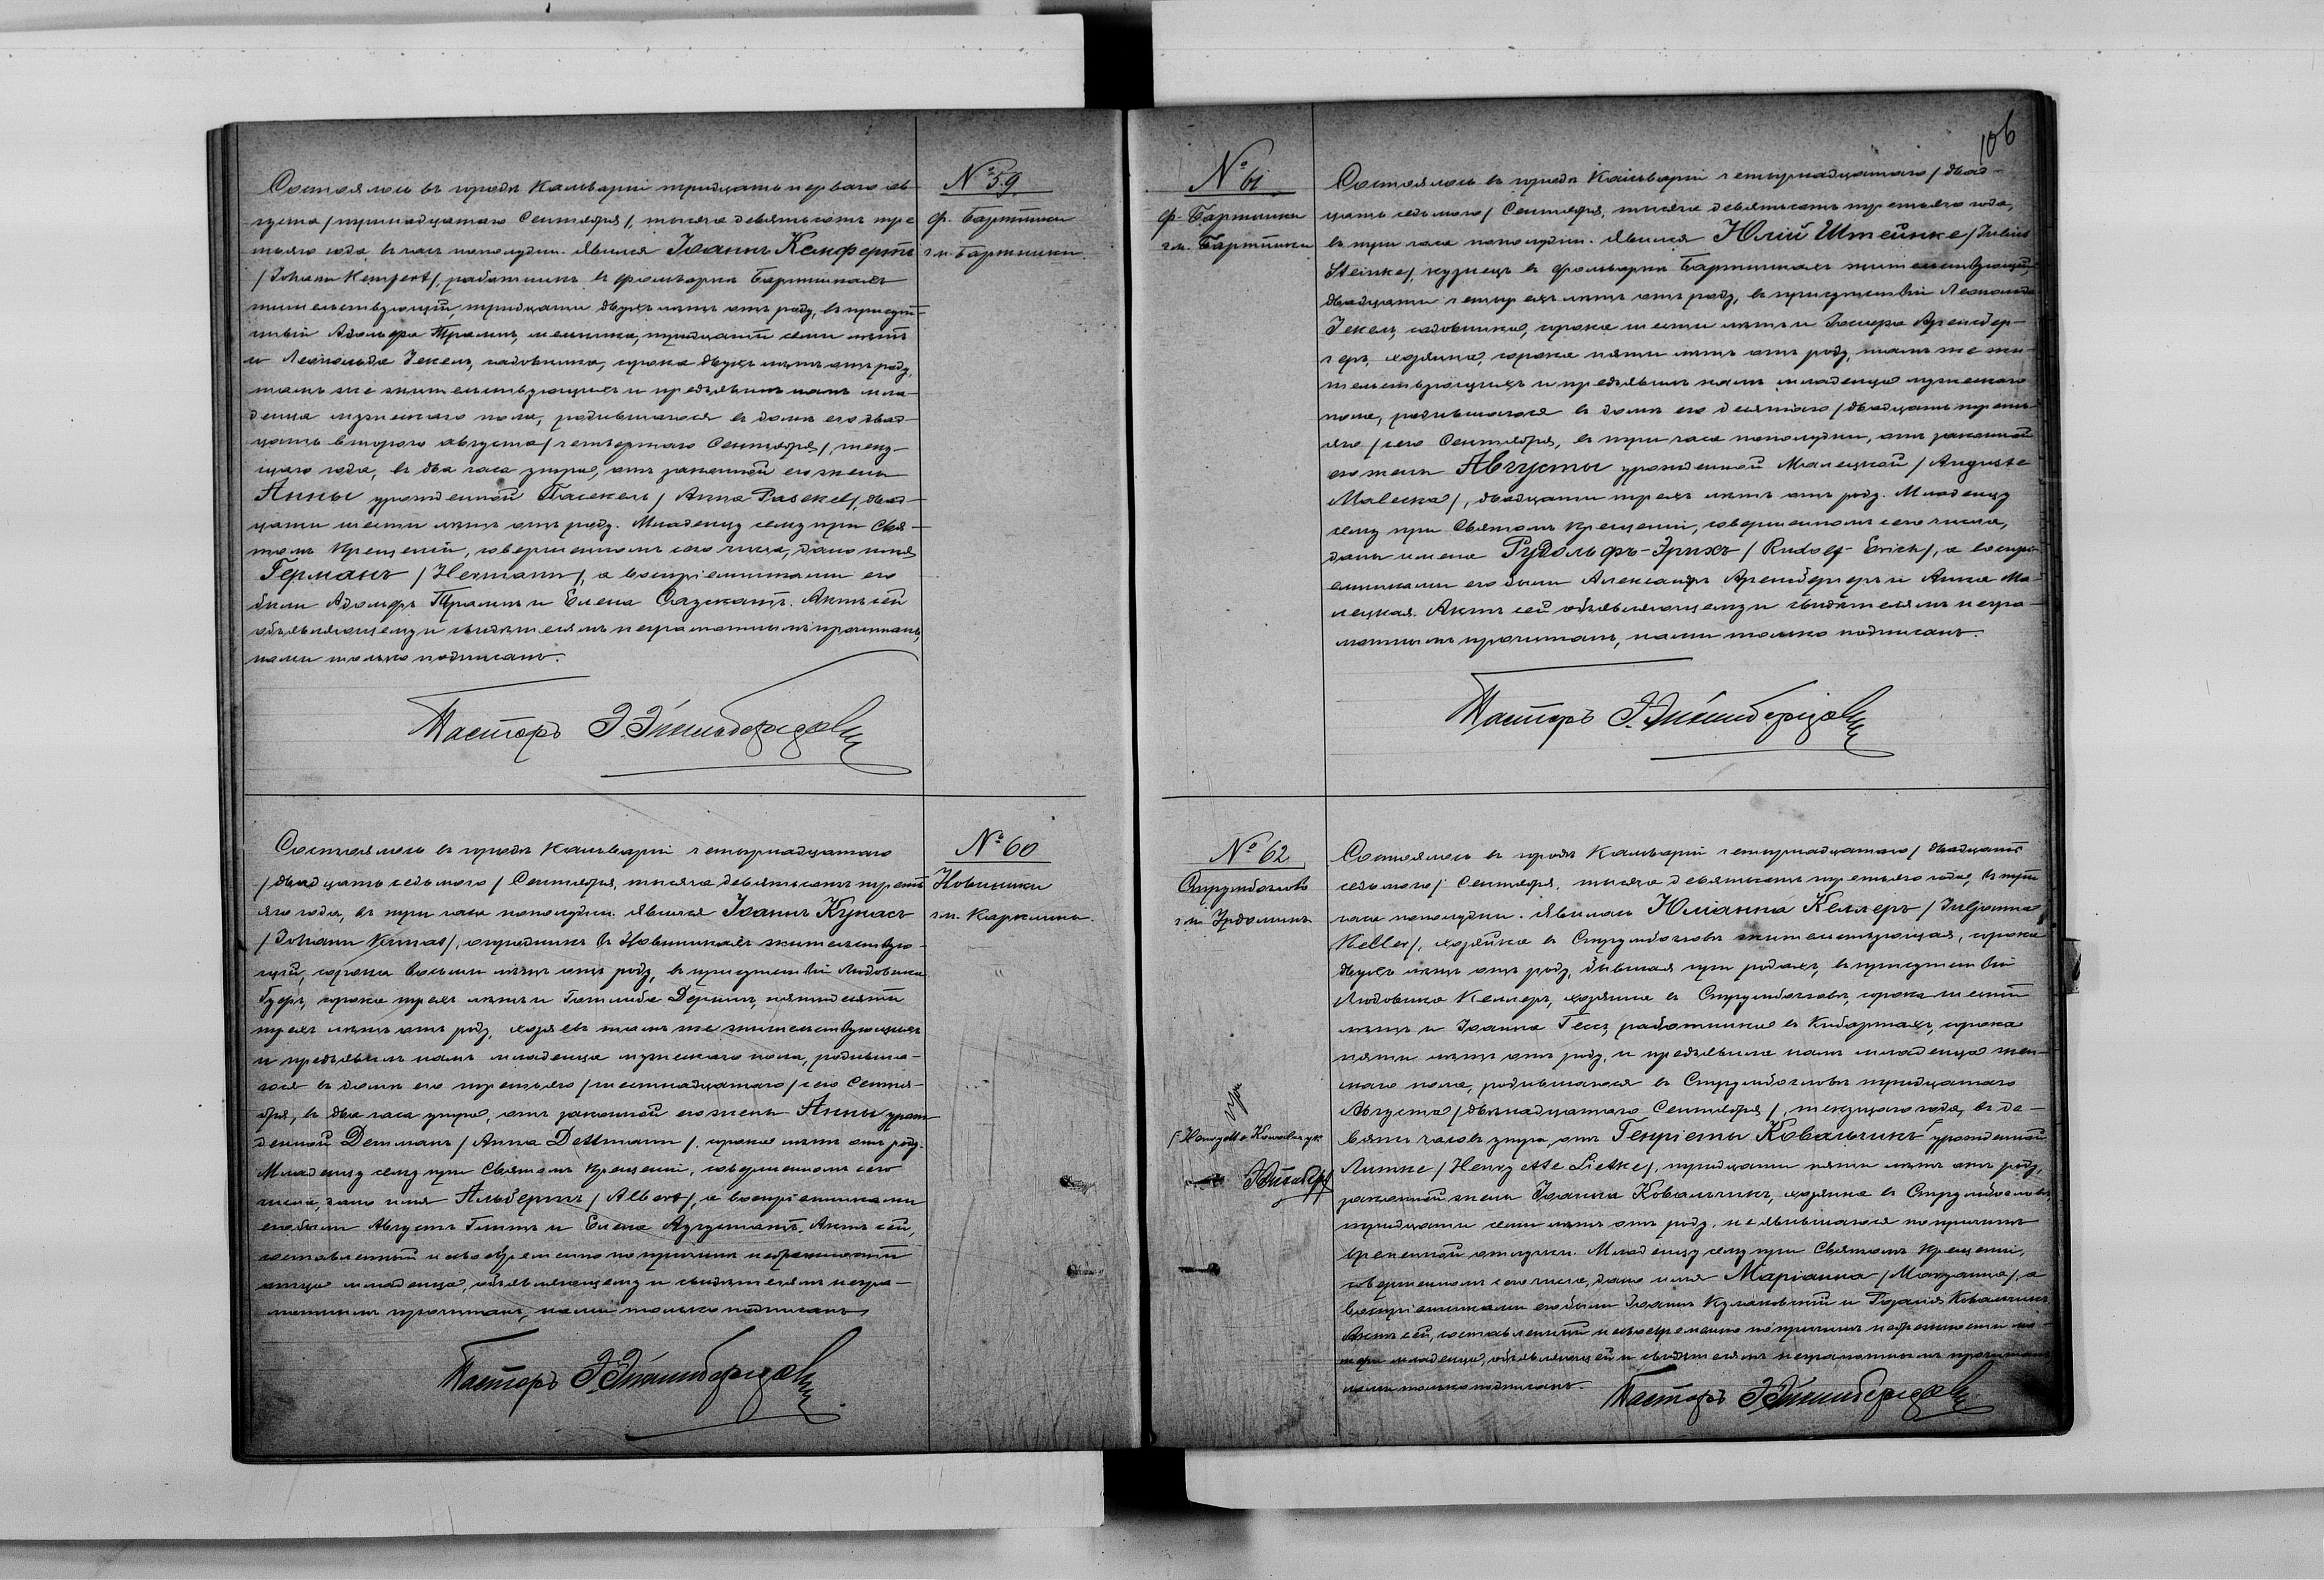 № 59
ф. Бартники
г.н. Бартники.
Состоялось въ городѣ Кальваріи тридцать перваго ав-
густа /тринадцатаго Сентября/, тысяча девятьсотъ тре
тьяго года, въ часъ пополудни. Явился Іоаннъ Кемфертъ
/Johann Kempert/, работникъ въ фольваркѣ Бартникахъ
жительствующій, тридцати двухъ лѣтъ отъ роду, въ присут-
ствіи Адольфа мельника, тридцати семи лѣтъ
и Леопольда Іекель, садовника, сорока двухъ лѣтъ отъ роду,
тамъ же жительствующихъ и предъявилъ намъ мла-
денца мужескаго пола, родившагося въ домѣ его двад-
цать втораго августа /четвертаго Сентября/, теку-
щаго года, въ два часа утра, отъ законной его жены
Анны урожденной Пасекель /Anna Pasekel/, двад-
цати шести лѣтъ отъ роду. Младенцу сему при Свя-
томъ Крещеніи, совершенномъ сего числа, дано имя
Германъ /Hermann/, а воспріемниками его
были Адольфъ и Елена Актъ сей
объявляющему и свидѣтелямъ неграмотнымъ прочитанъ,
нами только подписанъ.
Пасторъ
№ 60
Новиники
г.н.
Состоялось въ городѣ Кальваріи четырнадцатаго
/двадцать седьмаго/ Сентября, тысяча девятьсотъ треть
яго года, въ три часа пополудни. Явился Іоаннъ Кунасъ
/Johann Kunas/, огородникъ въ Новиникахъ жительствую-
щій, сорока восьми лѣтъ отъ роду, въ присутствіи Людовика
сорока трехъ лѣтъ и Готлиба пятидесяти
трехъ лѣтъ отъ роду, хозяевъ тамъ же жительствующихъ
и предъявилъ намъ младенца мужескаго пола, родивша-
гося въ домѣ его третьяго /шестнадцатаго/ сего Сентя-
бря, въ два часа утра, отъ законной его жены Анны урож-
денной Детманъ /Anna Dettmann/, сорока лѣтъ отъ роду.
Младенцу сему при Святомъ Крещеніи, совершенномъ сего
числа, дано имя Альбертъ /Albert/, а воспріемниками
его были Августъ и Елена Актъ сей,
составленный несвоевременно по причинѣ небрежности
отца младенца, объявляющему и свидѣтелямъ негра-
мотнымъ прочитанъ, нами только подписанъ
Пасторъ
106
№ 61
ф. Бартники
г.н. Бартники
Состоялось въ городѣ Кальваріи четырнадцатаго /двад-
цать седьмаго/ Сентября, тысяча девятьсотъ третьяго года,
въ три часа пополудни. Явился Юлій Штейнке /Julius
Steinke/, кузнецъ въ фольваркѣ Бартникахъ жительствующій,
двадцати четырехъ лѣтъ отъ роду, въ присутствіи Леопольда
Іекель, садовника, сорока шести лѣтъ и
хозяина, сорока пяти лѣтъ отъ роду, тамъ же жи-
тельствующихъ и предъявилъ намъ младенца мужескаго
пола, родившагося въ домѣ его десятаго /двадцать треть-
яго/ сего Сентября, въ три часа пополудни, отъ законной
его жены Августы урожденной Малецкой /Auguste
Malecka/, двадцати трехъ лѣтъ отъ роду. Младенцу
сему при Святомъ Крещеніи, совершенномъ сего числа,
даны имена Рудольфъ-Эрихъ /Rudolf-Erich/, а воспрі-
емниками его были Александръ и Анна Ма-
лецкая. Актъ сей объявляющему и свидѣтелямъ негра-
мотнымъ прочитанъ, нами только подписанъ.
Пасторъ
№ 62
Струмбоглово
г.н.
Состоялось въ городѣ Кальваріи четырнадцатаго /двадцать
седьмаго/ Сентября, тысяча девятьсотъ третьяго года, въ три
часа пополудни. Явилась Юліанна Келлеръ /Juljanna
Keller/, хозяйка въ Струмбогловѣ жительствующая, сорока
двухъ лѣтъ отъ роду, бывшая при родахъ, въ присутствіи
Людовика Келлеръ, хозяина въ Струмбогловѣ, сорока шести
лѣтъ и Іоанна Гессъ, работника въ Кибартахъ, сорока
пяти лѣтъ отъ роду, и предъявила намъ младенца жен-
скаго пола, родившагося въ Струмбогловѣ тридцатаго
Августа /двѣнадцатаго Сентября/, текущаго года, въ де-
вять часовъ утра, отъ Генріеты Ковальчикъ урожденной
Литке /Henryette Lietke/, тридцати пяти лѣтъ отъ роду,
законной жены Іоанна Ковальчикъ, хозяина въ Струмбогловѣ,
тридцати семи лѣтъ отъ роду, неявившагося по причинѣ
временной отлучки. Младенцу сему при Святомъ Крещеніи,
совершенномъ сего числа, дано имя Маріанна /Maryanna/, а
воспріемниками его были Іоаннъ и Розалія Ковальчикъ
Актъ сей, составленный несвоевременно по причинѣ небрежности
младенца, объявляющей и свидѣтелямъ неграмотнымъ прочитанъ
нами только подписанъ.
Пасторъ